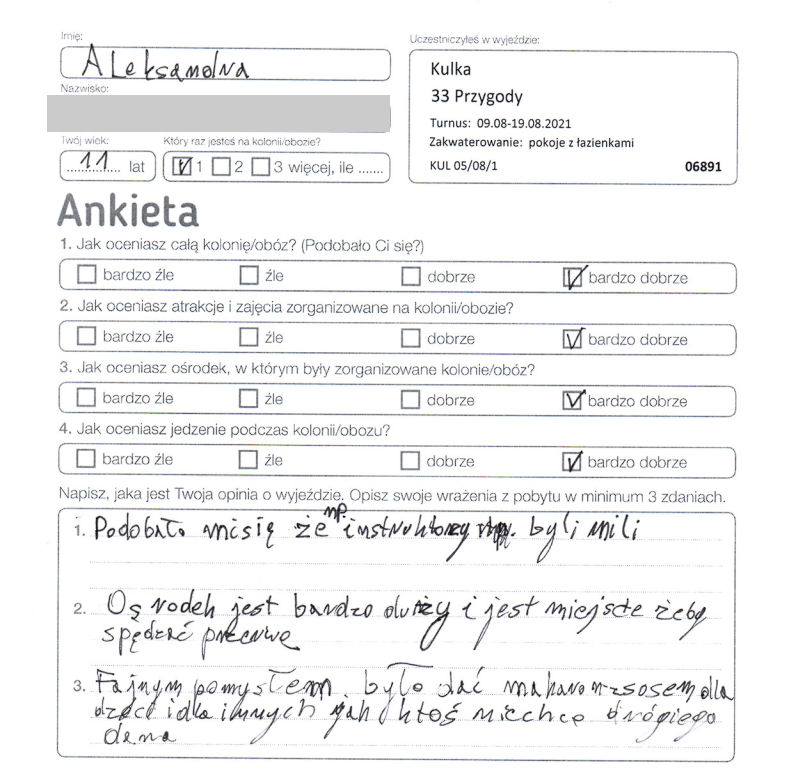 Imię:
Aleksandra
Nazwisko:
Twój wiek:
11 lat
Który raz jesteś na kolonii/obozie?
1 2 3 więcej, ile .......
Uczestniczyłeś w wyjeździe:
Kulka
33 Przygody
Turnus: 09.08-19.08.2021
Zakwaterowanie: pokoje z łazienkami
KUL 05/08/1 06891
Ankieta
1. Jak oceniasz całą kolonię/obóz? (Podobało Ci się?)
bardzo źle źle dobrze bardzo dobrze
2. Jak oceniasz atrakcje i zajęcia zorganizowane na kolonii/obozie?
bardzo źle źle dobrze bardzo dobrze
3. Jak oceniasz ośrodek, w którym były zorganizowane kolonie/obóz?
bardzo źle źle dobrze bardzo dobrze
4. Jak oceniasz jedzenie podczas kolonii/obozu?
bardzo źle źle dobrze bardzo dobrze
Napisz, jaka jest Twoja opinia o wyjeździe. Opisz swoje wrażenia z pobytu w minimum 3 zdaniach.
1. Podobało misię że np. instruktorzy byli mili
2. Ośrodek jest bardzo duży i jest miejsce żeby
spędzać przerwę
3. Fajnym pomysłem było dać makaron z sosem dla
dzieci i dla innych jak ktoś niechce drógiego
dana